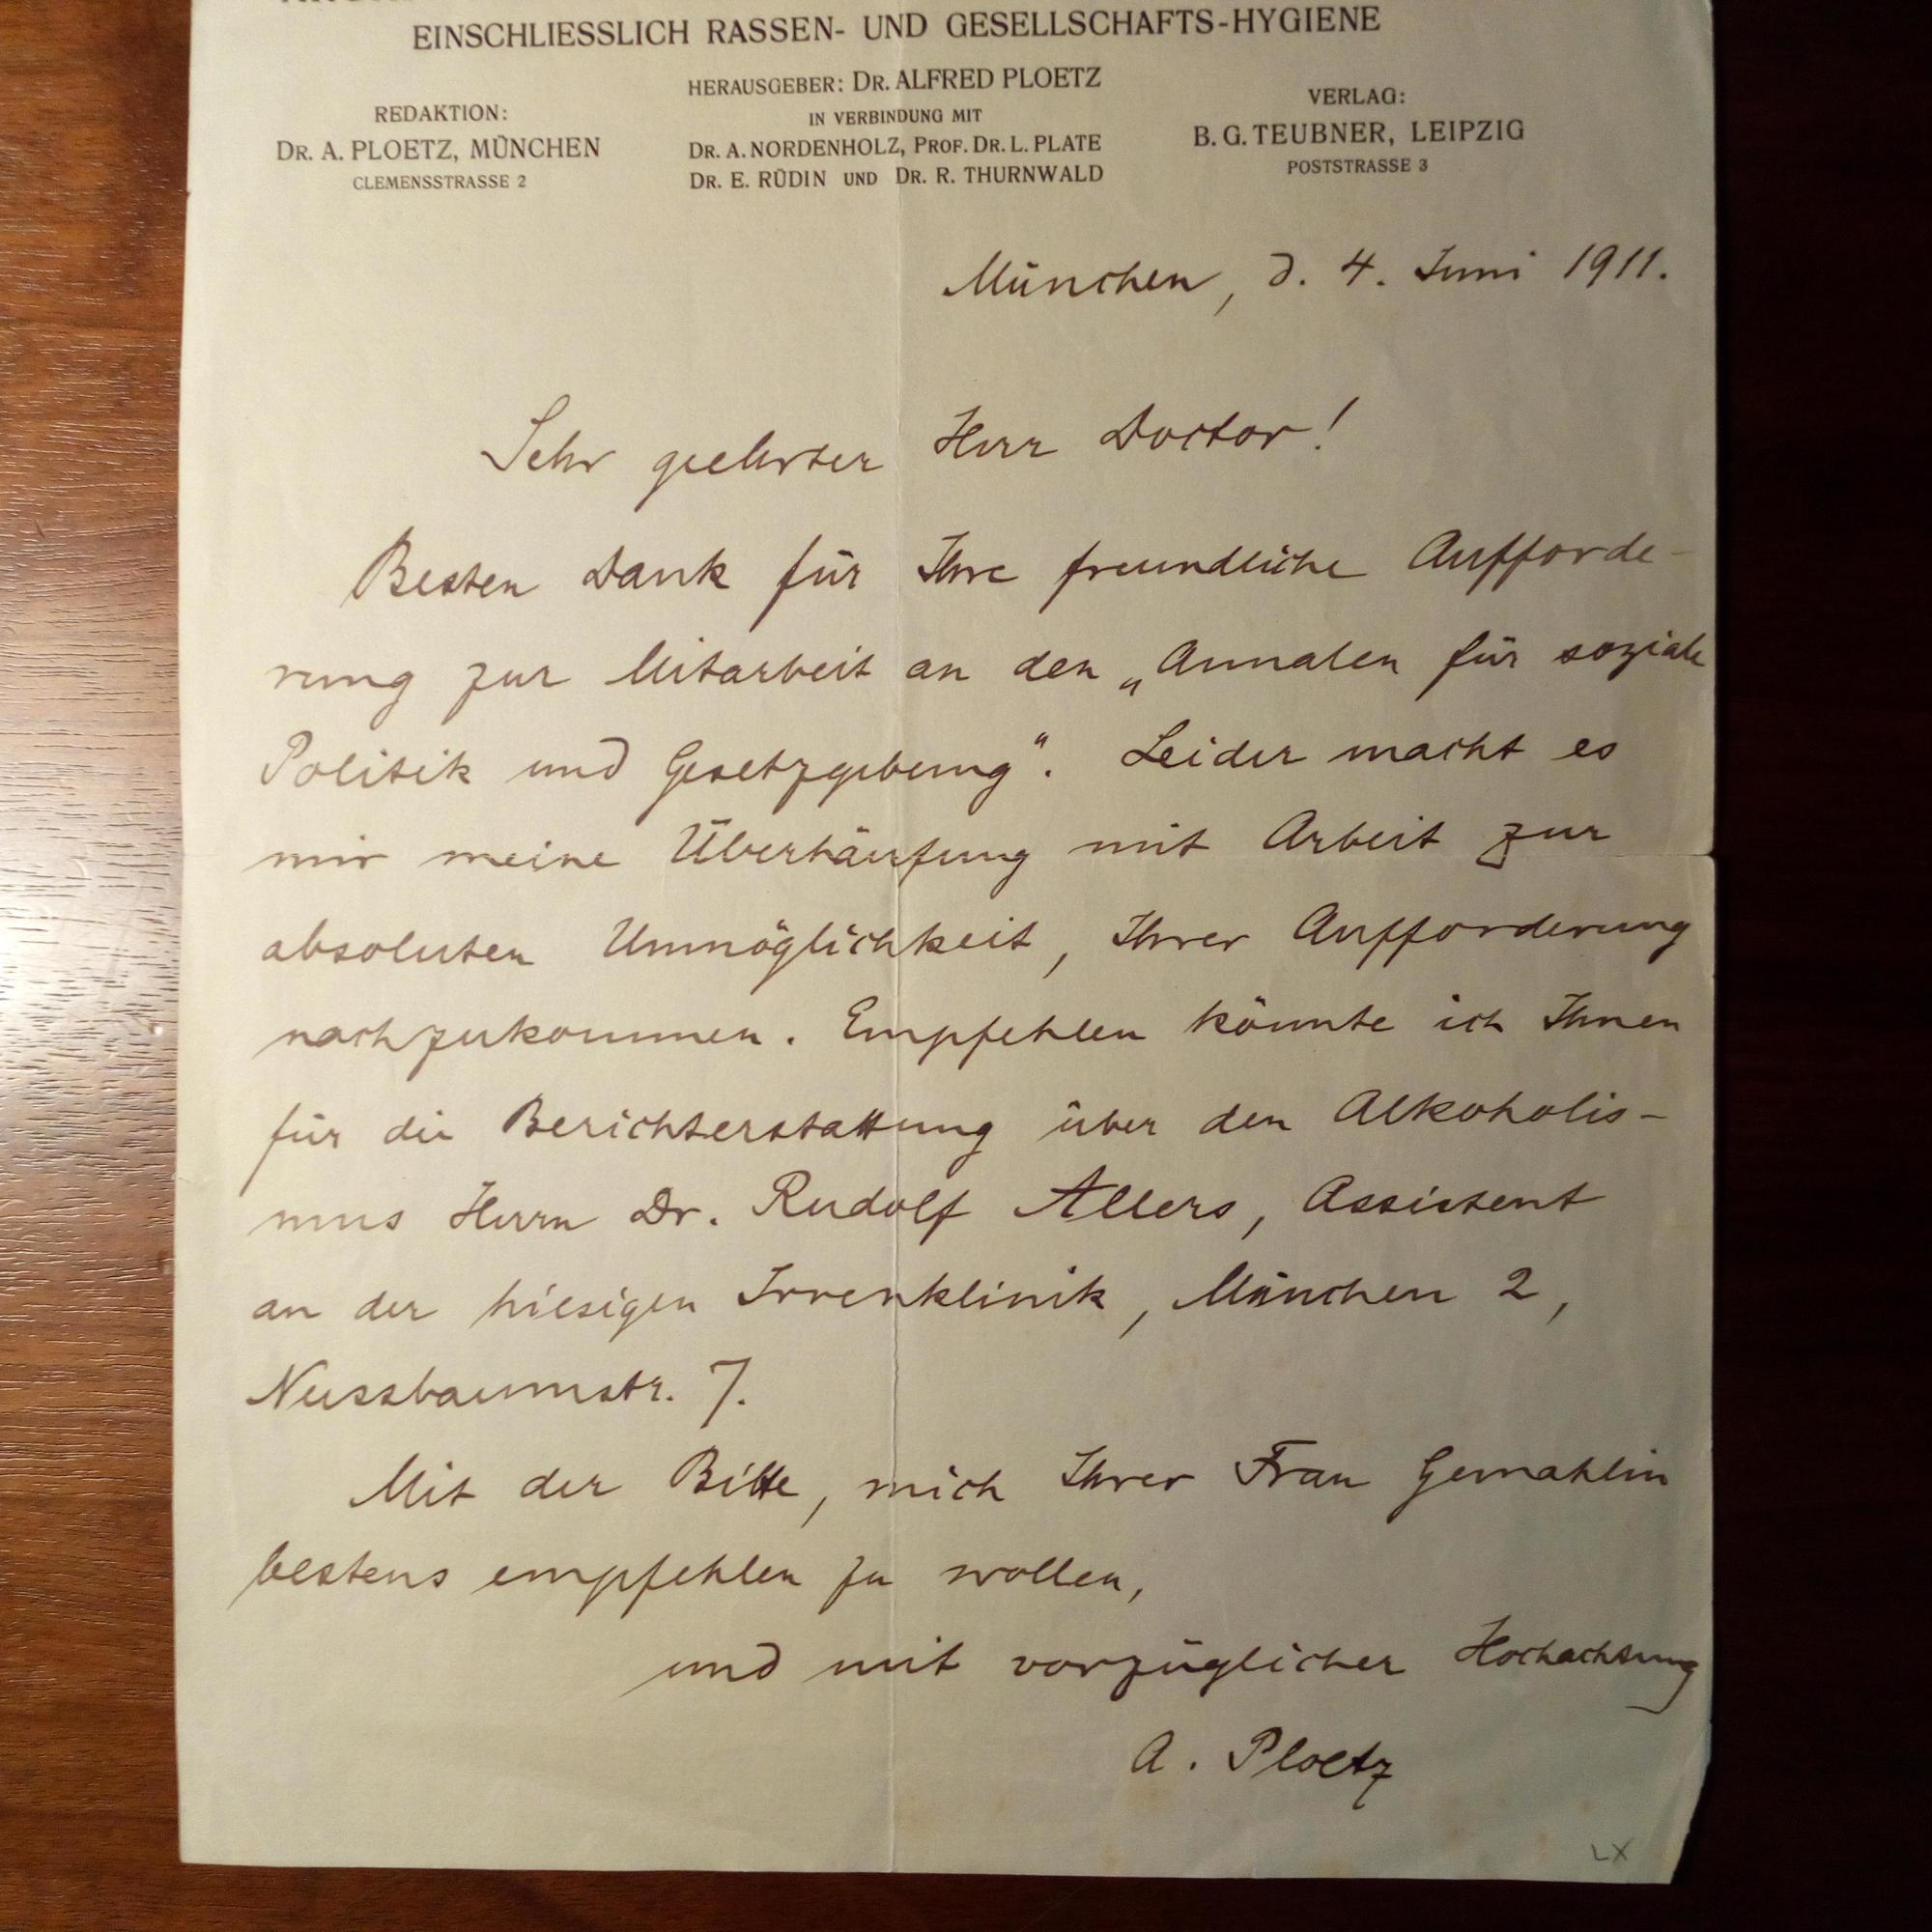 EINSCHLIESSLICH RASSEN- UND GESELLSCHAFTS-HYGIENE
HERAUSGEBER: DR. ALFRED PLOETZ
IN VERBINDUNG MIT
DR. A. NORDENHOLZ, PROF. DR. L. PLATE
DR. E. RÜDIN UND DR. R. THURNWALD
REDAKTION:
DR. A. PLOETZ, MÜNCHEN
CLEMENSSTRASSE 2
VERLAG:
B. G. TEUBNER, LEIPZIG
POSTSTRASSE 3
München, d. 4. Juni 1911.
Sehr geehrter Herr Doctor!
Besten Dank für Ihre freundliche Aufforde-
rung zur Mitarbeit an den „Annalen für soziale
Politik und Gesetzgebung“. Leider macht es
mir meine Überhäufung mit Arbeit zur
absoluten Unmöglichkeit, Ihrer Aufforderung
nachzukommen. Empfehlen könnte ich Ihnen
für die Berichterstattung über den Alkoholis-
mus Herrn Dr. Rudolf Allers, Assistent
an der hiesigen Irrenklinik, München 2,
Nussbaumstr. 7.
Mit der Bitte, mich Ihrer Frau Gemahlin
bestens empfehlen zu wollen,
und mit vorzüglicher Hochachtung
A. Ploetz
LX